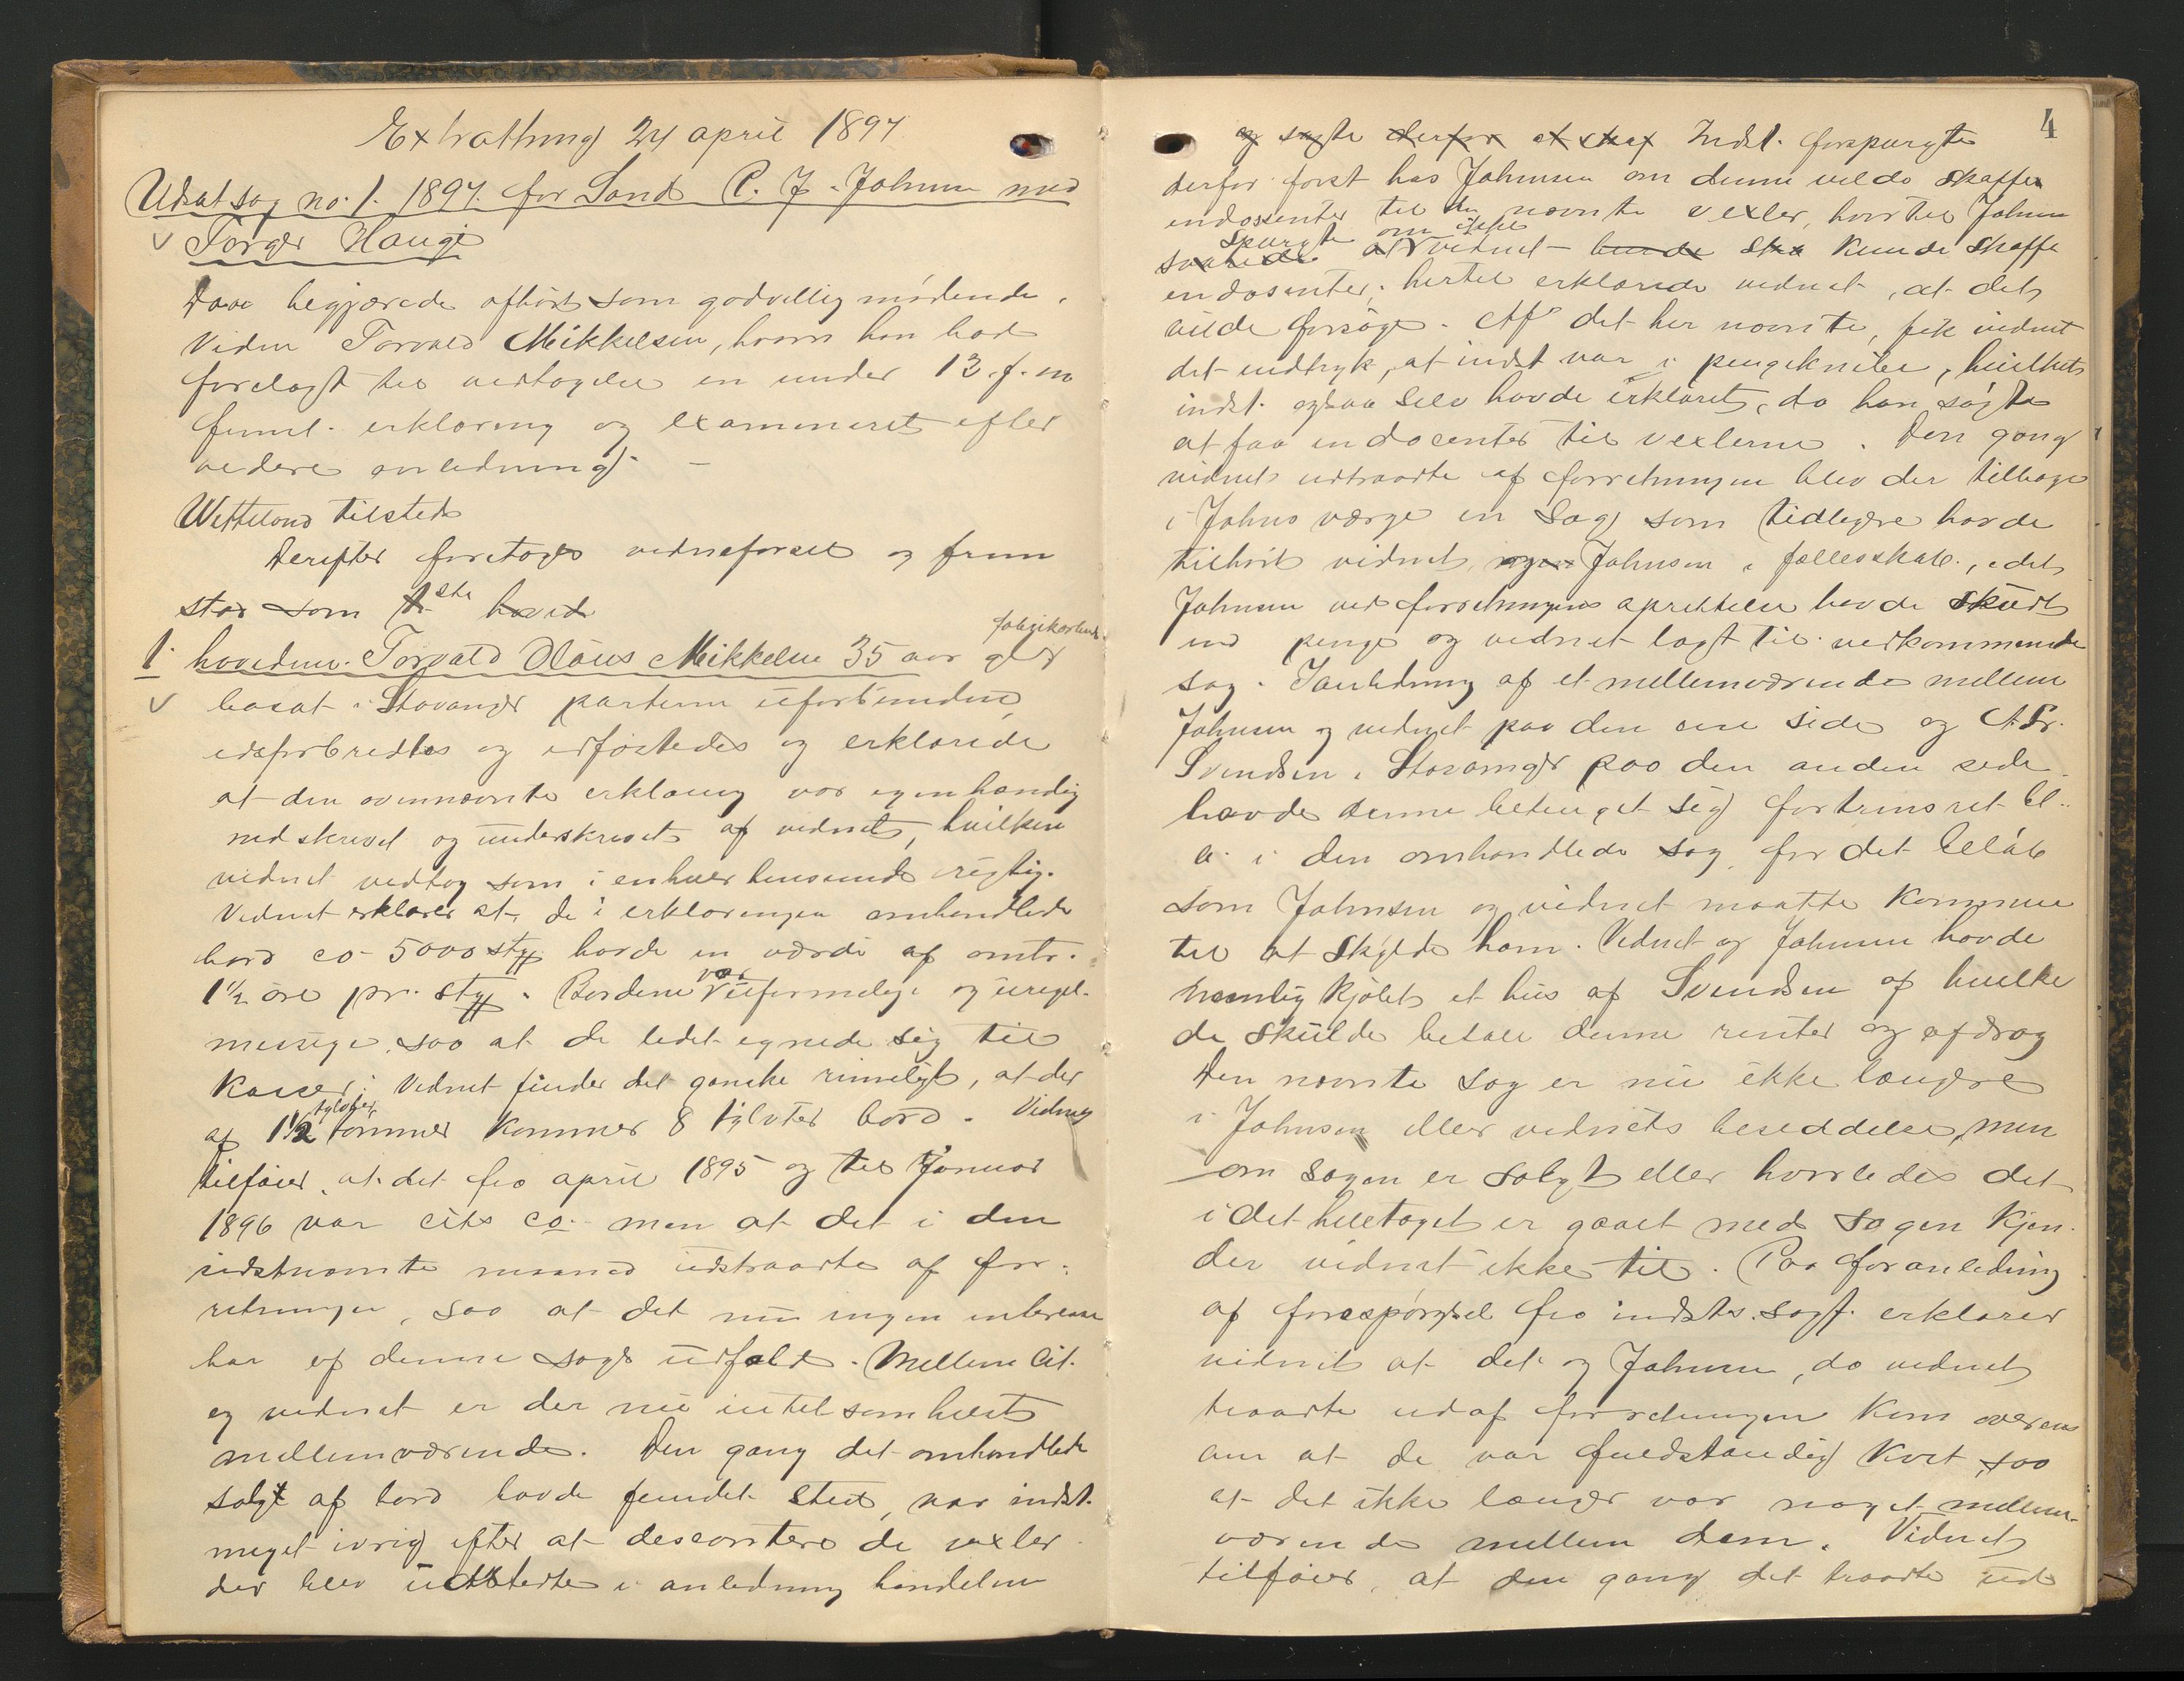 Extrathing 24 april 1897
Udsat sag no. 1. 1897. for Sand C. J. Johnsen mod
v Torger Hauge
Daa begjærede afhørt som godvillig mødende.
Vidne Torvald Mikkelsen, hvem han bad
forelagt til vedtagelse en under 13. f. m
fremt. erklæring og examineret efter
videre anledning. –
Wetteland tilstede
Derefter foretoges vidneforsel og frem
stod som 1ste hovid
1. hovedvn. Torvald Olaus Mikkelsen 35 aar gl fabrikarbeid.
v bosat i Stavanger parterne uforbunden,
edsforbredtes og edfæstedes og erklærede
at den ovennævnte erklæring var egenhændig
nedskrevet og underskrevet af vidnet, hvilken
vidnet vedtog som i enhver henseende rigtig.
Vidnet erklærer at de i erklæringen omhandlede
bord ca 5000 styk havde en værdi af omtr.
1½ øre pr. styk. Bordene var uformelige og uregel-
messige, saa at de ledet egnede sig til
kasser. Vidnet finder det ganske rimeligt, at der
af 1½ tylvter tømmer kommer 8 tylvter bord. Vidnet
tilføier, at det fra april 1895 og til Januar
1896 var cits co. men at det i den
sidstnævnte maaned udtraadte af for-
retningen, saa at det nu ingen interesse
har af denne sags udfald. Mellem Cit.
og vidnet er der nu intetsomhelst
mellemværende. Den gang det omhandlede
salgt af bord havde fundet sted, var indst.
meget ivrig efter at descontere de vexler
der blev udstedte i anledning handelen
4
og søgte derfor at skaf Indst. forspurgte
derfor først hos Johnsen om denne vilde skaffe
endossenter til de nævnte vexler, hvortil Johnsen
svarede spurgte at om ikke vidnet kunde ska kunde skaffe
endosenter; hertil erklærede vidnet, at det
vilde forsøge. Af det her nævnte, fik vidnet
det indtryk, at indst var i pengeknibe, hvilket
indst. ogsaa selv havde erklæret, da han søgte
at faa endocenter til vexlerne. Den gang
vidnet udtraadte af forretningen blev der tilbage
i Johns værge en Sag som tidligere havde
tilhørt vidnet og Johnsen i fællesskab, idet
Johnsen ved forretningens oprettelse havde skudt
ind penge og vidnet lagt til vedkommende
sag. I anledning af et mellemværende mellem
Johnsen og vidnet paa den ene side og A. Pr.
Svendsen i Stavanger paa den anden side
havde denne betinget sig fortrinsret bl.
a. i den omhandlede sag for det beløb
som Johnsen og vidnet maatte komme
til at skylde ham. Vidnet og Johnsen havde
nemlig kjøbt et hus af Svendsen af hvilke
de skulde betale denne renter og afdrag
Den nævnte sag er nu ikke længere
i Johnsen eller vidnets besiddelse, men
om sagen er solgt eller hvorledes det
i det heletaget er gaaet med sagen kjen-
der vidnet ikke til. Paa foranledning
af forespørgsel fra indsts. sagf. erklærer
vidnet at det og Johnsen, da vidnet
traadte ud af forretningen kom overens
om at de var fuldstændig kvit, saa
at det ikke længer var noget mellem-
værende mellem dem. Vidnet
tilføier, at den gang det traadte ud